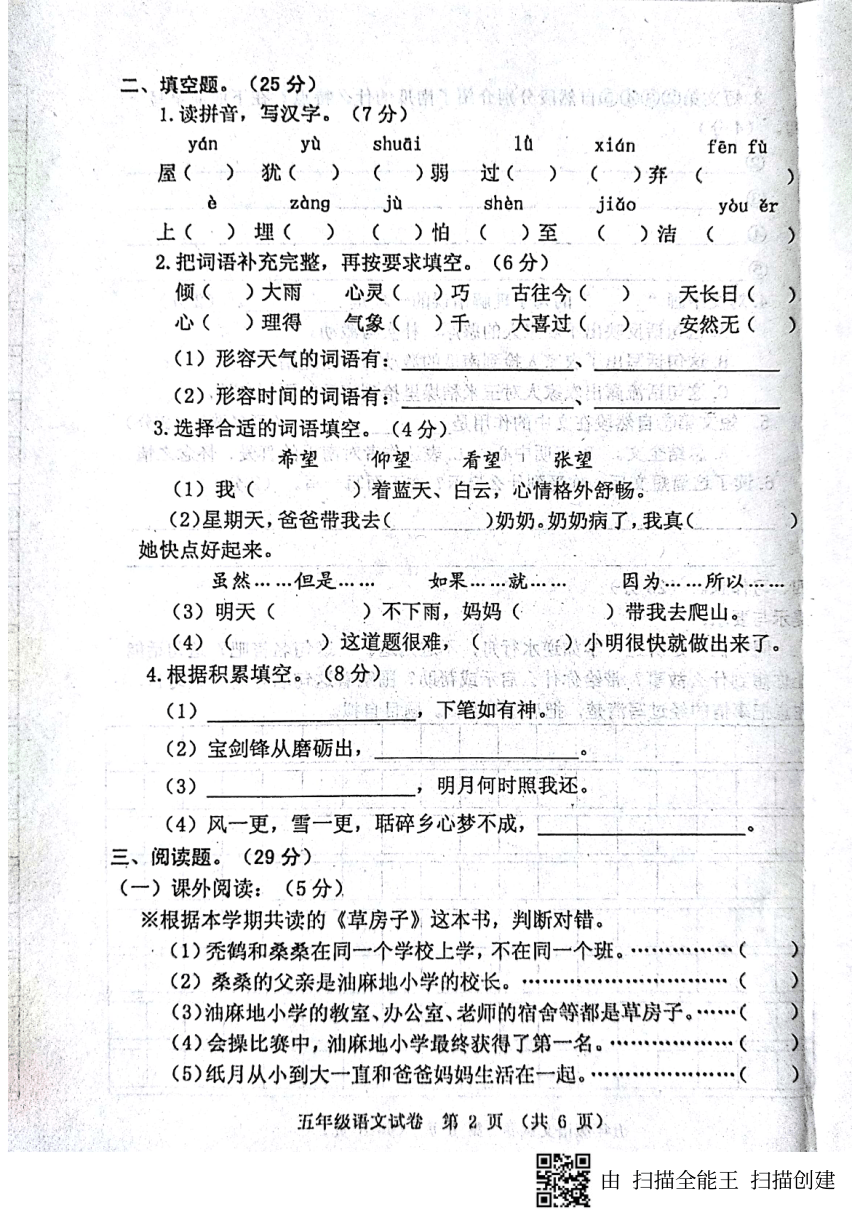 二、填空题。（25分）
1.读拼音，写汉字。（7分）
yán yù shuāi lǜ xián fēn fù
屋（ ） 犹（ ） （ ）弱 过（ ） （ ）弃 （ ）
è zàng jù shèn jiǎo yòu ěr
上（ ） 埋（ ） （ ）怕 （ ）至 （ ）洁 （ ）
2.把词语补充完整，再按要求填空。（6分）
倾（ ）大雨 心灵（ ）巧 古往今（ ） 天长日（ ）
心（ ）理得 气象（ ）千 大喜过（ ） 安然无（ ）
（1）形容天气的词语有：____________、____________
（2）形容时间的词语有：____________、____________
3.选择合适的词语填空。（4分）
希望 仰望 看望 张望
（1）我（ ）着蓝天、白云，心情格外舒畅。
（2）星期天，爸爸带我去（ ）奶奶。奶奶病了，我真（ ）
她快点好起来。
虽然……但是…… 如果……就…… 因为……所以……
（3）明天（ ）不下雨，妈妈（ ）带我去爬山。
（4）（ ）这道题很难，（ ）小明很快就做出来了。
4.根据积累填空。（8分）
（1）____________，下笔如有神。
（2）宝剑锋从磨砺出，____________。
（3）____________，明月何时照我还。
（4）风一更，雪一更，聒碎乡心梦不成，____________。
三、阅读题。（29分）
（一）课外阅读：（5分）
※根据本学期共读的《草房子》这本书，判断对错。
（1）秃鹤和桑桑在同一个学校上学，不在同一个班。……………（ ）
（2）桑桑的父亲是油麻地小学的校长。…………………………（ ）
（3）油麻地小学的教室、办公室、老师的宿舍等都是草房子。……（ ）
（4）会操比赛中，油麻地小学最终获得了第一名。………………（ ）
（5）纸月从小到大一直和爸爸妈妈生活在一起。…………………（ ）
五年级语文试卷 第 2 页 （共 6 页）
由 扫描全能王 扫描创建